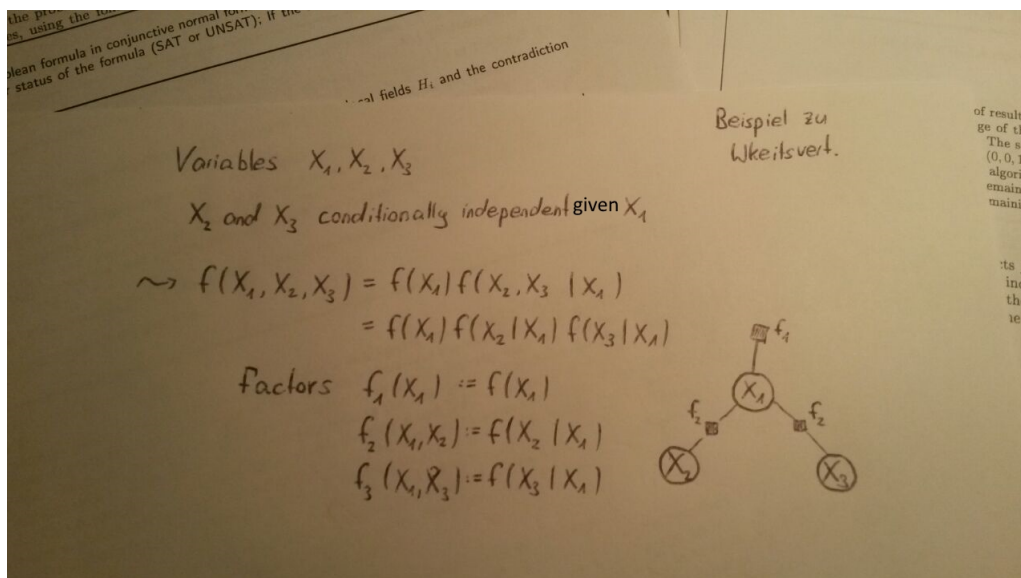 the
es, using the
olean formula in conjunctive normal
status of the formula (SAT or UNSAT); If the
fields Hᵢ and the contradiction
of result
ge of t
The s
(0, 0, 1
algori
emain
maini
ts
in
th
Beispiel zu
Wkeitsvert.
Variables X₁, X₂, X₃
X₂ and X₃ conditionally independent given X₁
⤳ f(X₁, X₂, X₃) = f(X₁) f(X₂, X₃ | X₁)
= f(X₁) f(X₂ | X₁) f(X₃ | X₁)
Factors f₁(X₁) := f(X₁)
f₂(X₁, X₂) := f(X₂ | X₁)
f₃(X₁, X₃) := f(X₃ | X₁)
f₁
X₁
f₂ f₂
X₂ X₃